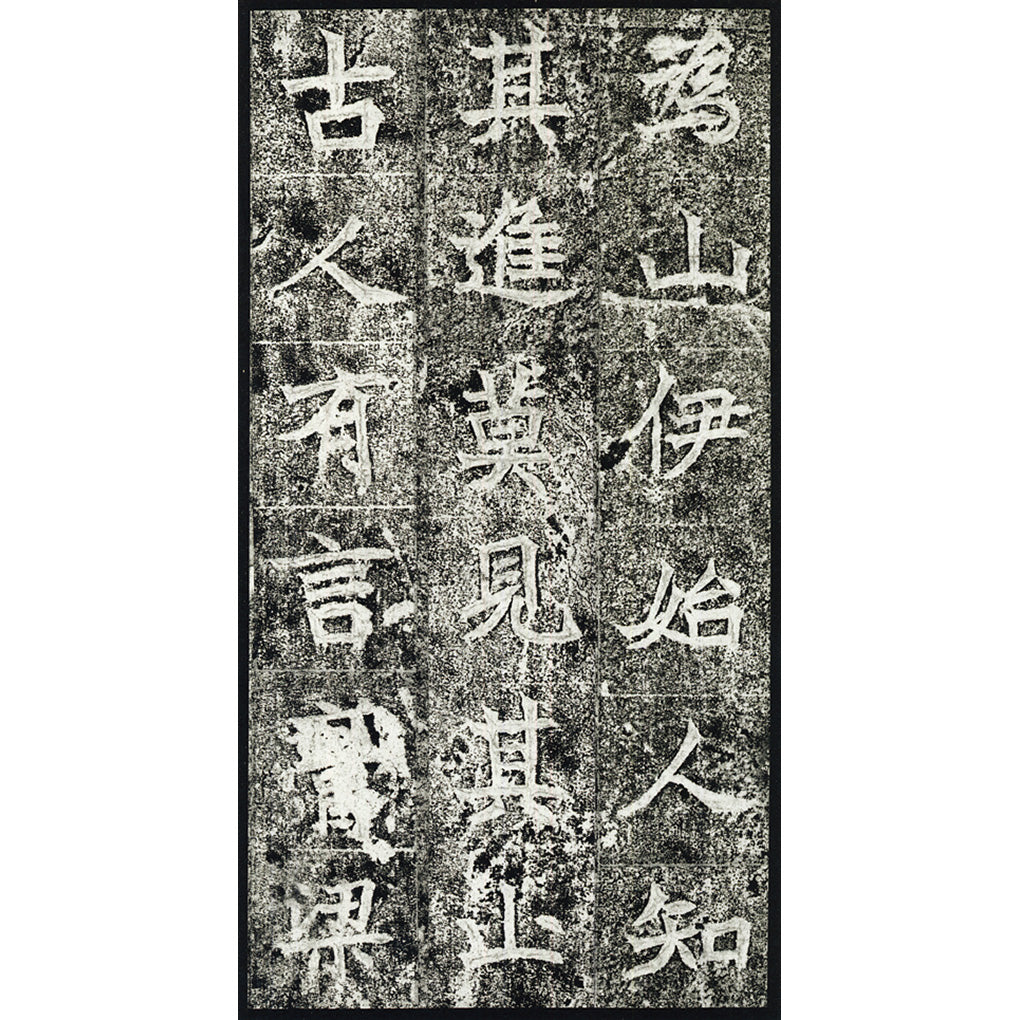 爲山伊始人知
其進莫見其止
古人有言梁